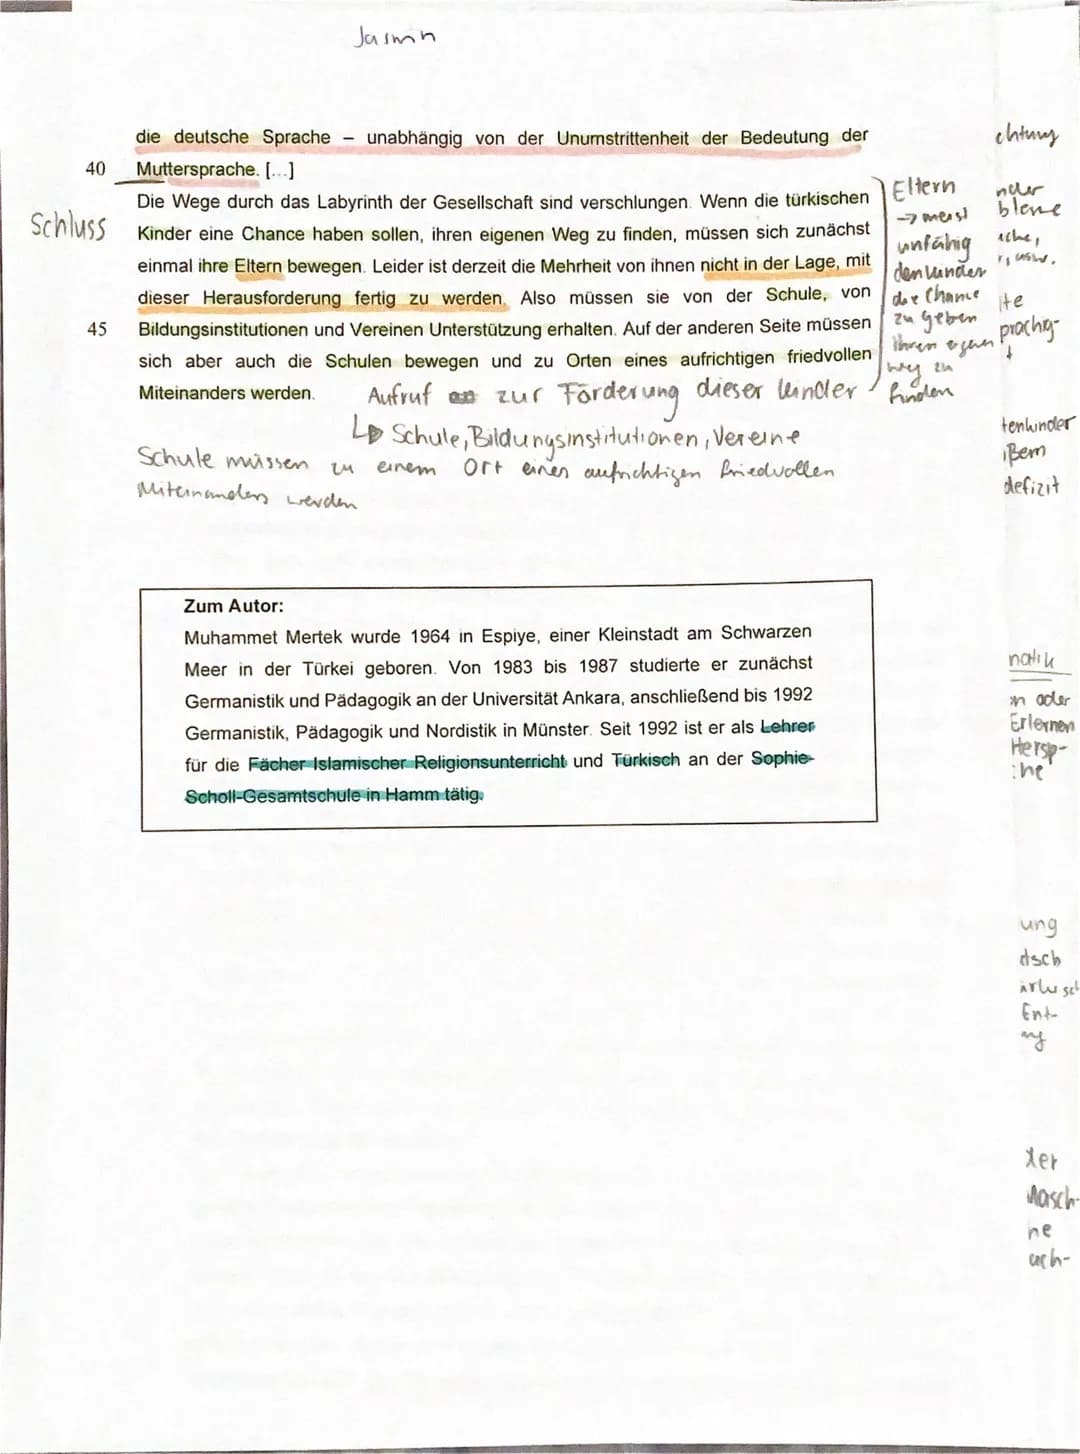 Jasmin
die deutsche Sprache – unabhängig von der Unumstrittenheit der Bedeutung der
40 Muttersprache. [...]
Schluss
Die Wege durch das Labyrinth der Gesellschaft sind verschlungen. Wenn die türkischen
Kinder eine Chance haben sollen, ihren eigenen Weg zu finden, müssen sich zunächst
einmal ihre Eltern bewegen. Leider ist derzeit die Mehrheit von ihnen nicht in der Lage, mit
dieser Herausforderung fertig zu werden. Also müssen sie von der Schule, von
45 Bildungsinstitutionen und Vereinen Unterstützung erhalten. Auf der anderen Seite müssen
sich aber auch die Schulen bewegen und zu Orten eines aufrichtigen friedvollen
Miteinanders werden.
Eltern
→ meist
unfähig
den Kinder
die Chance
zu geben
ihren eigenen
weg zu
finden
Aufruf zur Förderung dieser Kinder
↳ Schule, Bildungsinstitutionen, Vereine
Schule müssen zu einem Ort eines aufrichtigen friedvollen
Miteinanders werden
Zum Autor:
Muhammet Mertek wurde 1964 in Espiye, einer Kleinstadt am Schwarzen
Meer in der Türkei geboren. Von 1983 bis 1987 studierte er zunächst
Germanistik und Pädagogik an der Universität Ankara, anschließend bis 1992
Germanistik, Pädagogik und Nordistik in Münster. Seit 1992 ist er als Lehrer
für die Fächer Islamischer Religionsunterricht und Türkisch an der Sophie-
Scholl-Gesamtschule in Hamm tätig.
chtung
nder
bleme
ache,
usw.
prachig-
tenkinder
ßem
defizit
matik
en oder
Erlernen
Hersp-
che
ung
dsch
Ent-
ng
ter
Masch-
ne
ach-